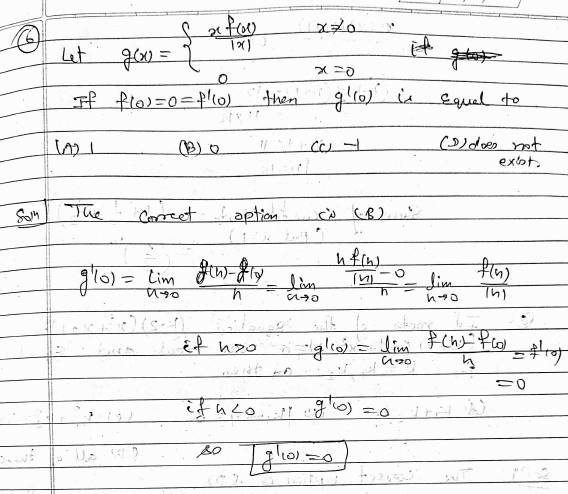 6 Let g(x) = { x f(x) / |x| x ≠ 0 if
0 x = 0
If f(0) = 0 = f'(0) then g'(0) is equal to
(A) 1 (B) 0 (C) -1 (D) does not exist.
Soln The correct option is (B).
g'(0) = lim h→0 (g(h) - g(0)) / h = lim h→0 (h f(h) / |h| - 0) / h = lim h→0 f(h) / |h|
if h > 0 g'(0) = lim h→0 (f(h) - f(0)) / h = f'(0)
= 0
if h < 0 g'(0) = 0
so g'(0) = 0